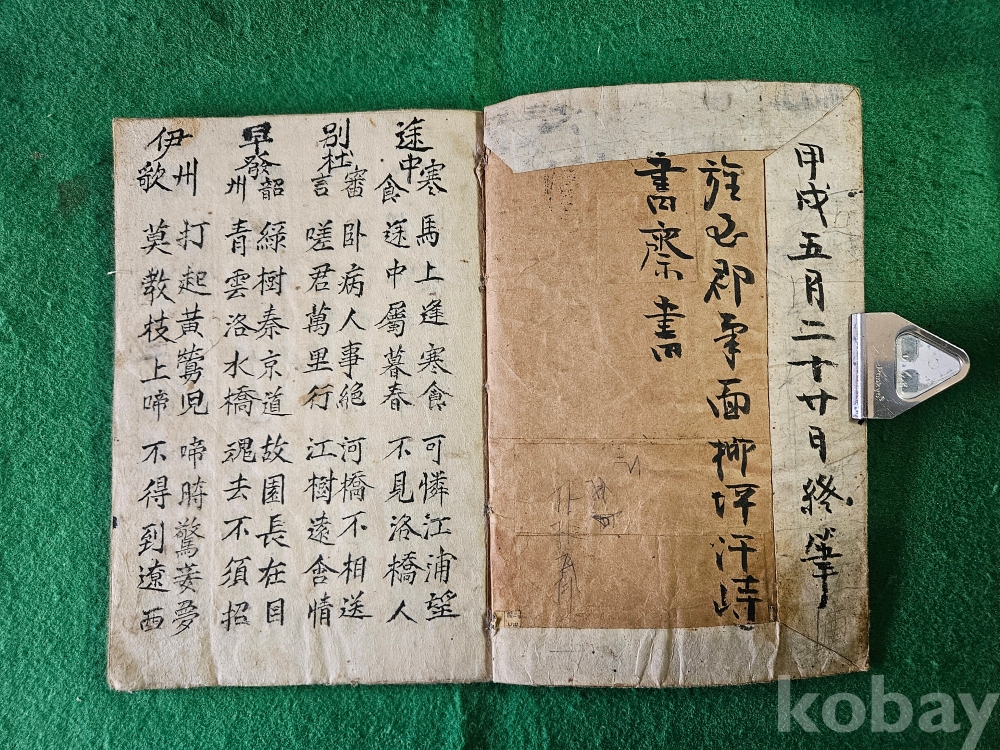 甲戌五月二十廿日終筆
旌善郡南面柳坪汗峙
書齋書
途中寒食
馬上逢寒食 可憐江浦望
途中屬暮春 不見洛橋人
別杜審言
卧病人事絶 河橋不相送
嗟君萬里行 江樹遠含情
早發韶州
綠樹秦京道 故園長在目
青雲洛水橋 魂去不須招
伊州歌
打起黃鶯児 啼時驚妾夢
莫教枝上啼 不得到遼西
kobay